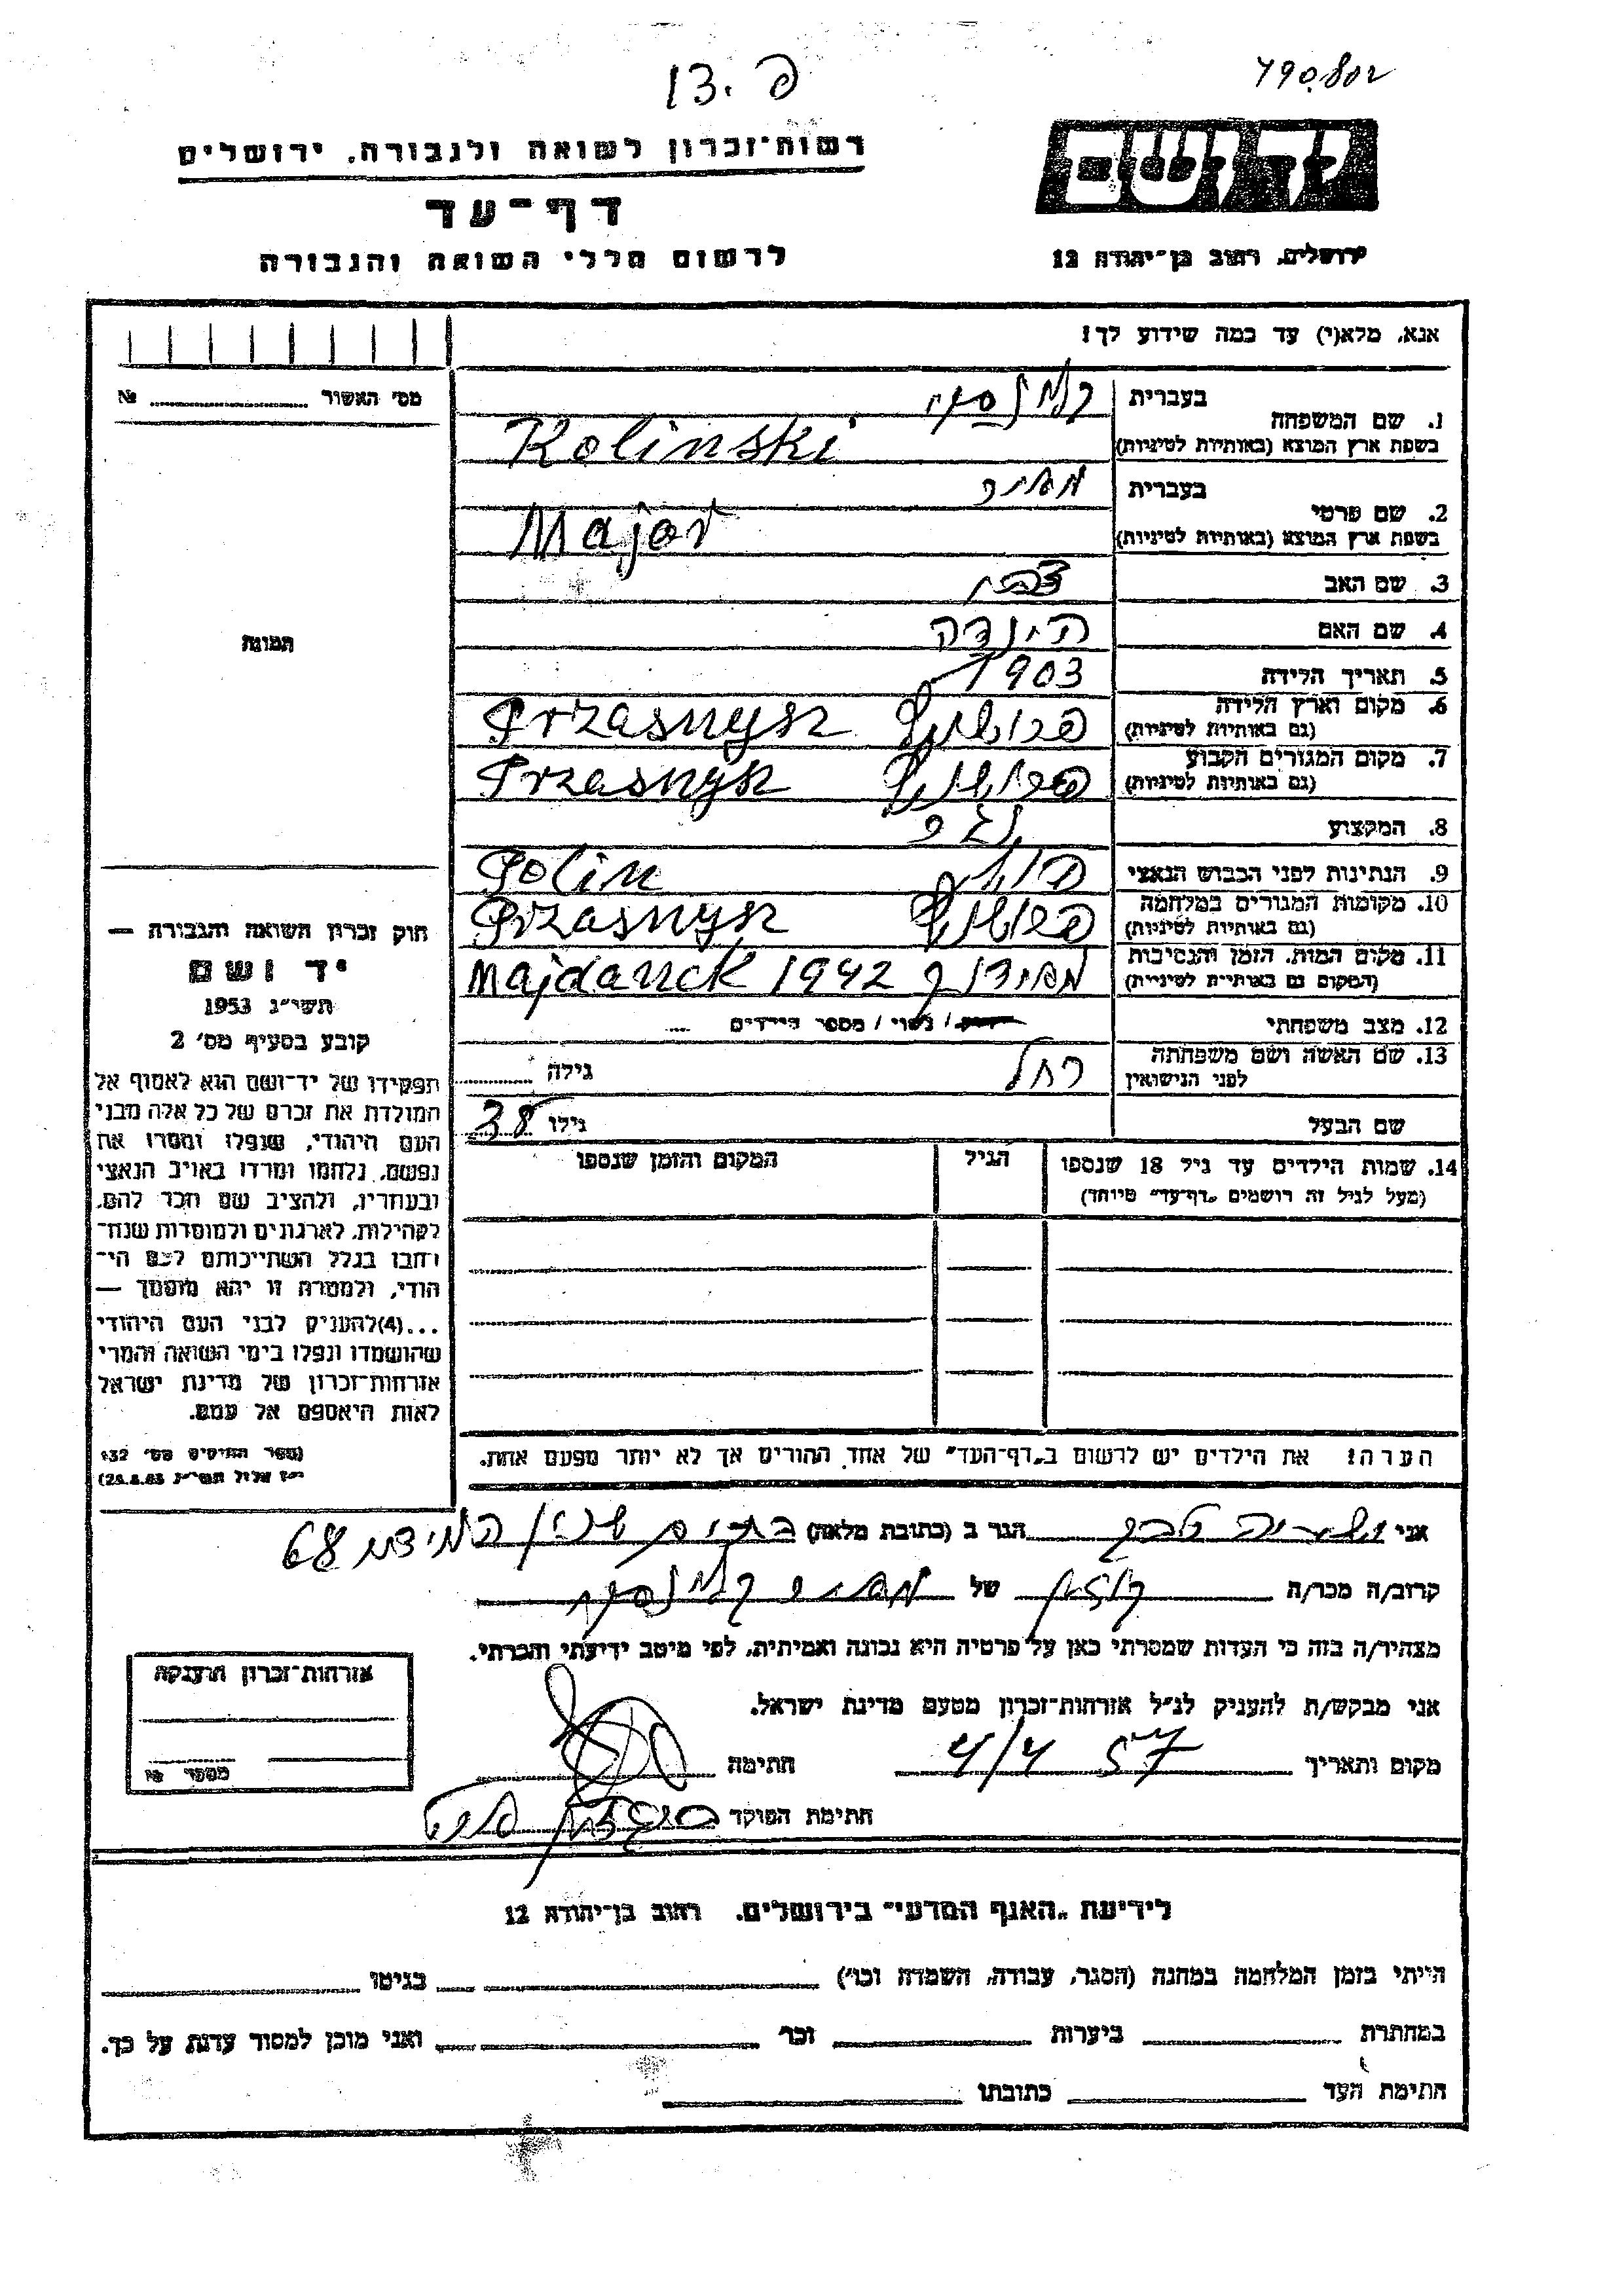 790.802
פ. 13
יד ושם
רשות־זכרון לשואה ולגבורה, ירושלים
דף־עד
לרשום חללי השואה והגבורה
ירושלים, רחוב בן־יהודה 12
אנא, מלא(י) עד כמה שידוע לך!
מס' האשור № ........
1. שם המשפחה
בעברית
בשפת ארץ המוצא (באותיות לטיניות) Kolinski
2. שם פרטי
בעברית מאיר
בשפת ארץ המוצא (באותיות לטיניות) Major
3. שם האב
4. שם האם הינדה
5. תאריך הלידה 1903
6. מקום וארץ הלידה
(גם באותיות לטיניות) Przasnysz
7. מקום המגורים הקבוע
(גם באותיות לטיניות) Przasnysz
8. המקצוע
9. הנתינות לפני הכבוש הנאצי פולין Polin
10. מקומות המגורים במלחמה
(גם באותיות לטיניות) Przasnysz
11. מקום המות, הזמן והנסיבות
(המקום גם באותיות לטיניות) מאידנק Majdanek 1942
12. מצב משפחתי
נשוי / מספר הילדים ....
13. שם האשה ושם משפחתה
לפני הנישואין רחל
גילה ........
שם הבעל
גילו 38
14. שמות הילדים עד גיל 18 שנספו
(מעל לגיל זה רושמים "דף־עד" מיוחד)
הגיל
המקום והזמן שנספו
הערה! את הילדים יש לרשום ב"דף־העד" של אחד ההורים אך לא יותר מפעם אחת.
תמונה
חוק זכרון השואה והגבורה —
יד ושם
תשי"ג 1953
קובע בסעיף מס' 2
תפקידו של יד־ושם הוא לאסוף אל
המולדת את זכרם של כל אלה מבני
העם היהודי, שנפלו ומסרו את
נפשם, נלחמו ומרדו באויב הנאצי
ובעוזריו, ולהציב שם וזכר להם,
לקהילות, לארגונים ולמוסדות שנח־
רבו בגלל השתייכותם לעם הי־
הודי, ולמטרה זו יהא מוסמך —
...(4) להעניק לבני העם היהודי
שהושמדו ונפלו בימי השואה והמרי
אזרחות־זכרון של מדינת ישראל
לאות היאספם אל עמם.
(ספר החוקים מס' 132
י"ז אלול תשי"ג 28.8.53)
אני
הגר ב (כתובת מלאה) 68
קרוב/ה מכר/ה
של מאיר
מצהיר/ה בזה כי העדות שמסרתי כאן על פרטיה היא נכונה ואמיתית, לפי מיטב ידיעתי והכרתי.
אני מבקש/ת להעניק לנ"ל אזרחות־זכרון מטעם מדינת ישראל.
מקום ותאריך 4/4 57
חתימה
חתימת הפוקד
אזרחות־זכרון הוענקה
מספר №
לידיעת "האגף המדעי" בירושלים, רחוב בן־יהודה 12
הייתי בזמן המלחמה במחנה (הסגר, עבודה, השמדה וכו') בגיטו
במחתרת ביערות וכו' ואני מוכן למסור עדות על כך.
חתימת העד כתובתו